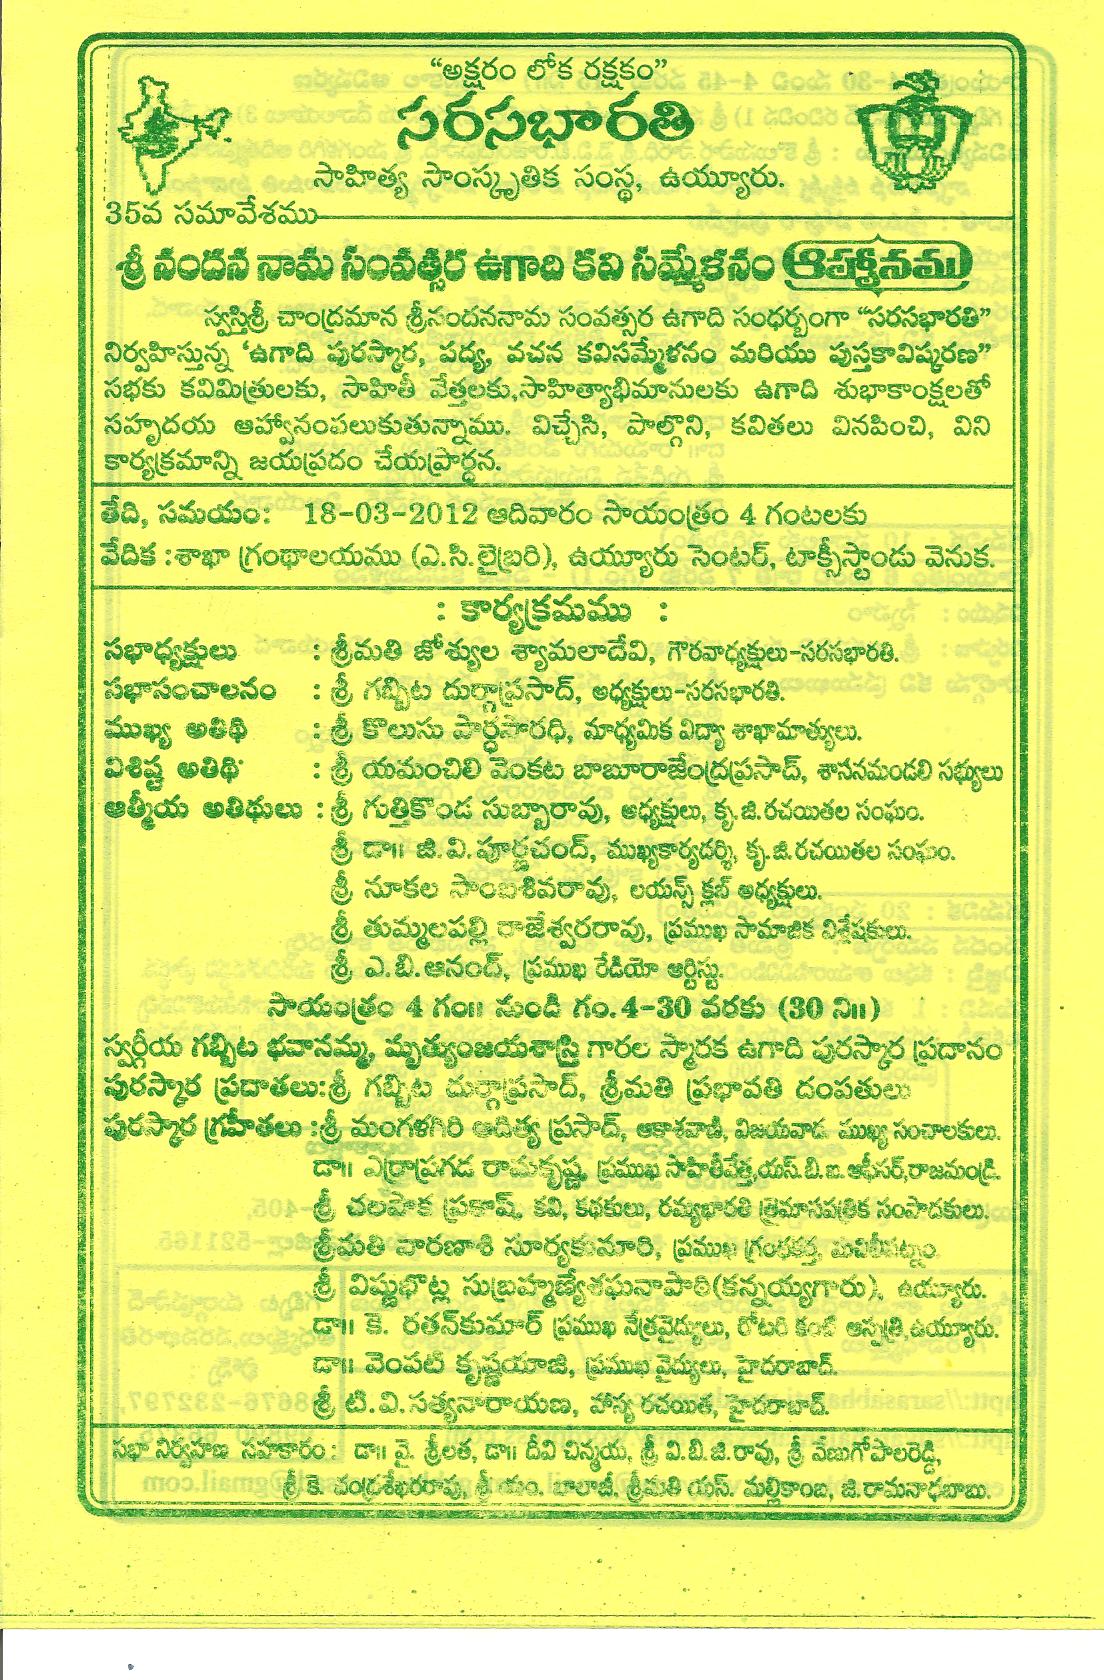 “అక్షరం లోక రక్షకం”
సరసభారతి
సాహిత్య సాంస్కృతిక సంస్థ, ఉయ్యూరు.
35వ సమావేశము
శ్రీ నందన నామ సంవత్సర ఉగాది కవి సమ్మేళనం ఆహ్వానము
స్వస్తిశ్రీ చాంద్రమాన శ్రీనందననామ సంవత్సర ఉగాది సందర్భంగా “సరసభారతి”
నిర్వహిస్తున్న ‘ఉగాది పురస్కార, పద్య, వచన కవిసమ్మేళనం మరియు పుస్తకావిష్కరణ”
సభకు కవిమిత్రులకు, సాహితీ వేత్తలకు,సాహిత్యాభిమానులకు ఉగాది శుభాకాంక్షలతో
సహృదయ ఆహ్వానంపలుకుతున్నాము. విచ్చేసి, పాల్గొని, కవితలు వినిపించి, విని
కార్యక్రమాన్ని జయప్రదం చేయప్రార్ధన.
తేది, సమయం: 18-03-2012 ఆదివారం సాయంత్రం 4 గంటలకు
వేదిక :శాఖా గ్రంథాలయము (ఎ.సి.లైబ్రరి), ఉయ్యూరు సెంటర్, టాక్సీస్టాండు వెనుక.
: కార్యక్రమము :
సభాధ్యక్షులు : శ్రీమతి జోశ్యుల శ్యామలాదేవి, గౌరవాధ్యక్షులు-సరసభారతి.
సభాసంచాలనం : శ్రీ గబ్బిట దుర్గాప్రసాద్, అధ్యక్షులు-సరసభారతి.
ముఖ్య అతిథి : శ్రీ కొలుసు పార్ధసారధి, మాధ్యమిక విద్యా శాఖామాత్యులు.
విశిష్ట అతిథి : శ్రీ యమంచిలి వెంకట బాబూరాజేంద్రప్రసాద్, శాసనమండలి సభ్యులు
ఆత్మీయ అతిథులు : శ్రీ గుత్తికొండ సుబ్బారావు, అధ్యక్షులు, కృ.జి.రచయితల సంఘం.
శ్రీ డా॥ జి.వి.పూర్ణచంద్, ముఖ్యకార్యదర్శి, కృ.జి.రచయితల సంఘం.
శ్రీ నూకల సాంబశివరావు, లయన్స్ క్లబ్ అధ్యక్షులు.
శ్రీ తుమ్మలపల్లి రాజేశ్వరరావు, ప్రముఖ సామాజిక విశ్లేషకులు.
శ్రీ ఎ.బి.ఆనంద్, ప్రముఖ రేడియో ఆర్టిస్టు.
సాయంత్రం 4 గం॥ నుండి గం.4-30 వరకు (30 ని॥)
స్వర్గీయ గబ్బిట భవానమ్మ, మృత్యుంజయశాస్త్రి గారల స్మారక ఉగాది పురస్కార ప్రదానం
పురస్కార ప్రదాతలు:శ్రీ గబ్బిట దుర్గాప్రసాద్, శ్రీమతి ప్రభావతి దంపతులు
పురస్కార గ్రహీతలు :శ్రీ మంగళగిరి ఆదిత్య ప్రసాద్, ఆకాశవాణి, విజయవాడ ముఖ్య సంచాలకులు.
డా॥ ఎర్రాప్రగడ రామకృష్ణ, ప్రముఖ సాహితీవేత్త,యస్.బి.ఐ.ఆఫీసర్,రాజమండ్రి.
శ్రీ చలపాక ప్రకాష్, కవి, కథకులు, రమ్యభారతి త్రైమాసపత్రిక సంపాదకులు.
శ్రీమతి వారణాశి సూర్యకుమారి, ప్రముఖ గ్రంథకర్త, మచిలీపట్నం.
శ్రీ విష్ణుభొట్ల సుబ్రహ్మణ్యేశఘనాపాఠి(కన్నయ్యగారు), ఉయ్యూరు.
డా॥ కె. రతన్‌కుమార్ ప్రముఖ నేత్రవైద్యులు, రోటరి కంటి ఆస్పత్రి,ఉయ్యూరు.
డా॥ వెంపటి కృష్ణయాజి, ప్రముఖ వైద్యులు, హైదరాబాద్.
శ్రీ టి.వి.సత్యనారాయణ, హాస్య రచయిత, హైదరాబాద్.
సభా నిర్వహణ సహకారం : డా॥ వై. శ్రీలత, డా॥ దీవి చిన్మయ, శ్రీ వి.బి.జి.రావు, శ్రీ వేణుగోపాలరెడ్డి,
శ్రీ కె. చంద్రశేఖరరావు, శ్రీ యం. బాలాజీ, శ్రీమతి యస్. మల్లికాంబ, జి.రామనాధబాబు.